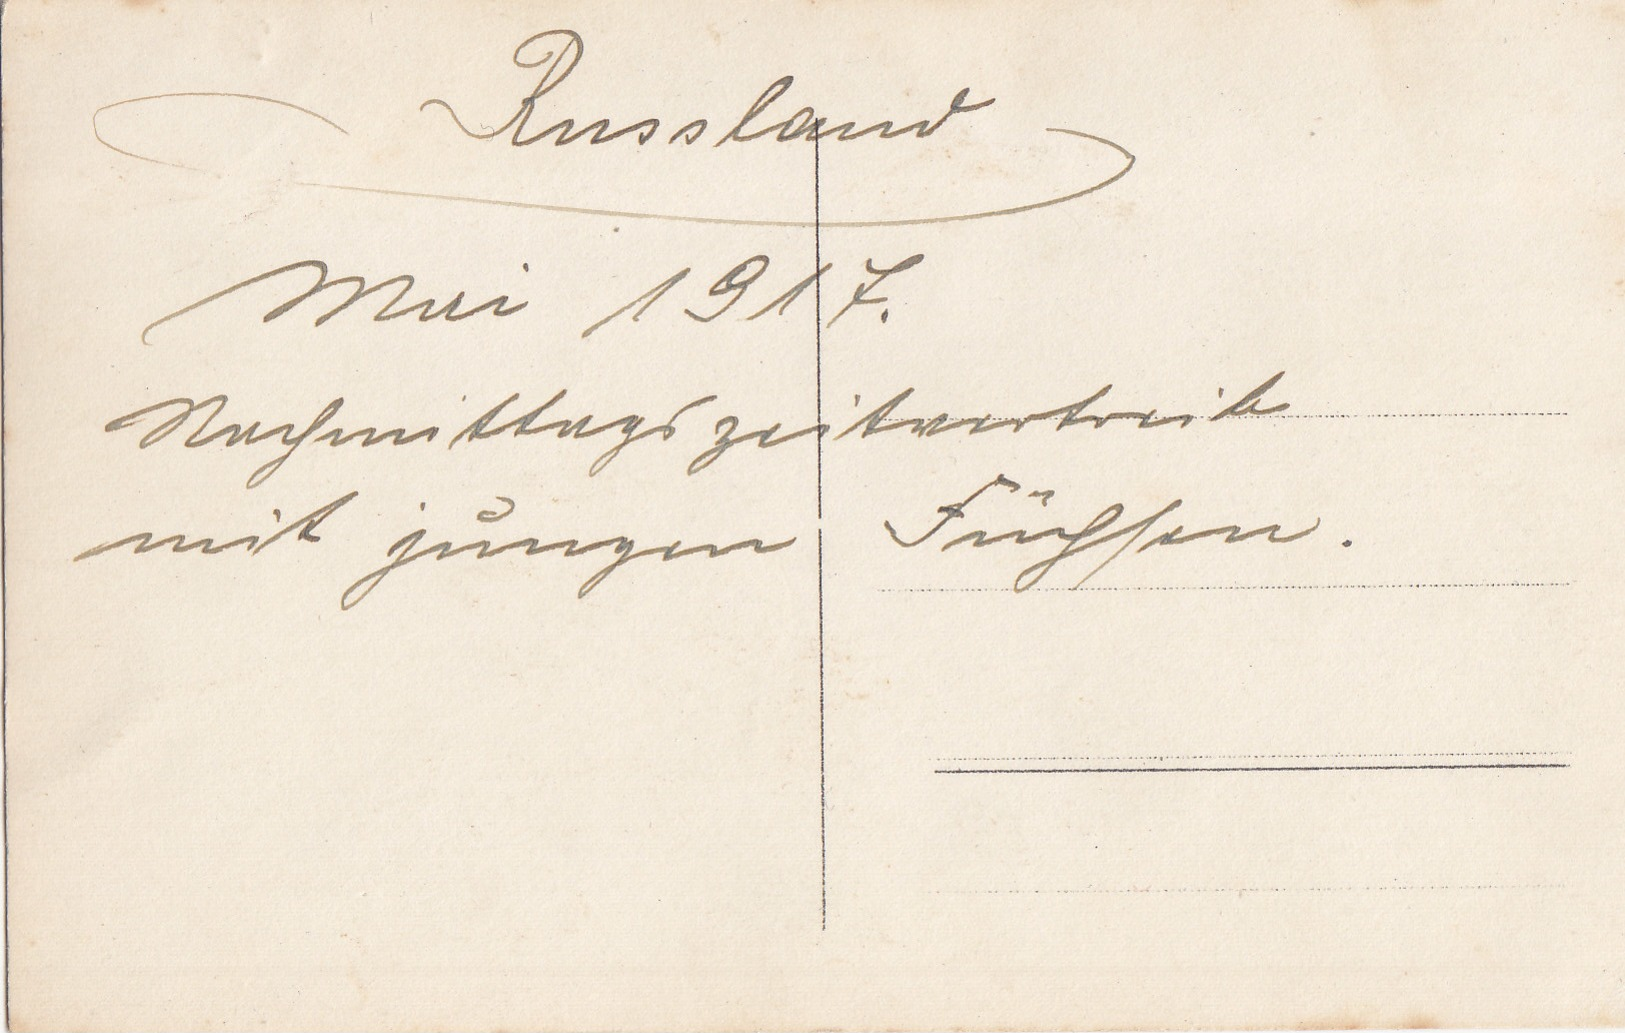 Russland
Mai 1917.
Nachmittagszeitvertreib
mit jungen Füchsen.